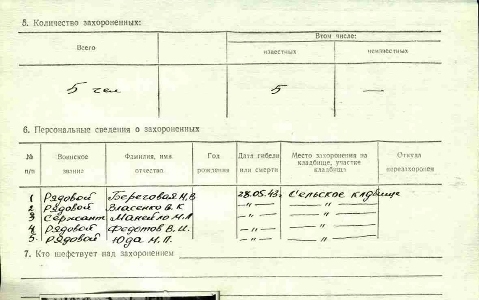 5. Количество захороненных:
Всего
В том числе:
известных
неизвестных
5 чел
5
—
6. Персональные сведения о захороненных
№ п/п
Воинское звание
Фамилия, имя отчество
Год рождения
Дата гибели или смерти
Место захоронения на кладбище, участке кладбища
Откуда перезахоронен
1 Рядовой Береговая Н.В 28.05.43. Сельское кладбище
2 Рядовой Власенко В.К —"— —"—
3 Сержант Манейло М.Л —"— —"—
4 Рядовой Федотов В.И. —"— —"—
5. Рядовой Юда М.П. —"— —"—
7. Кто шефствует над захоронением